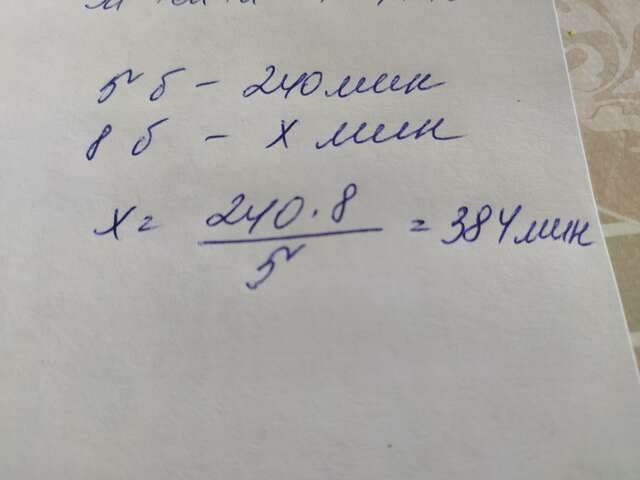 5 б - 240 мин
8 б - х мин
х = 240 · 8 / 5 = 384 мин